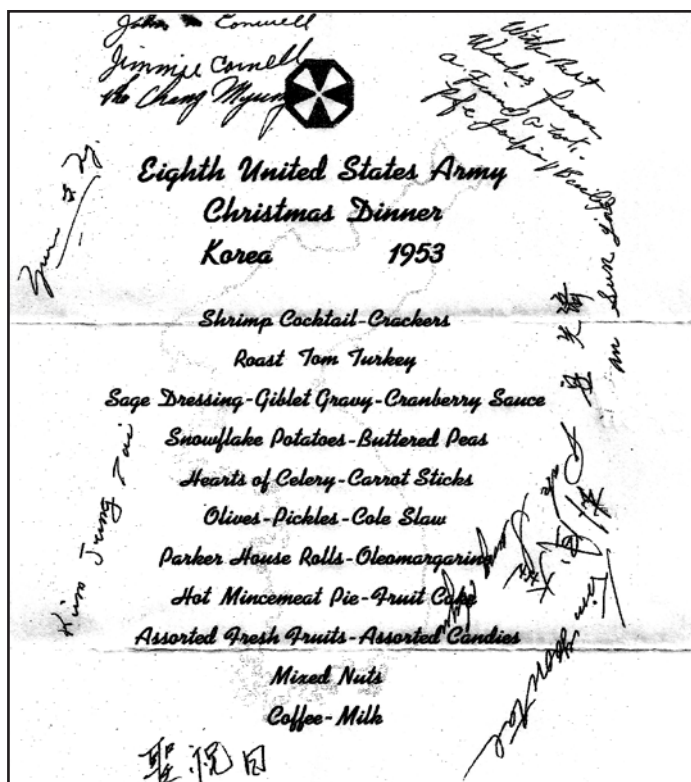 John Conwell
Jimmie Cornell
With Best
Eighth United States Army
Christmas Dinner
Korea 1953
Shrimp Cocktail-Crackers
Roast Tom Turkey
Sage Dressing-Giblet Gravy-Cranberry Sauce
Snowflake Potatoes-Buttered Peas
Hearts of Celery-Carrot Sticks
Olives-Pickles-Cole Slaw
Parker House Rolls-Oleomargarine
Hot Mincemeat Pie-Fruit Cake
Assorted Fresh Fruits-Assorted Candies
Mixed Nuts
Coffee-Milk
Kim Jung Tai
聖祝日